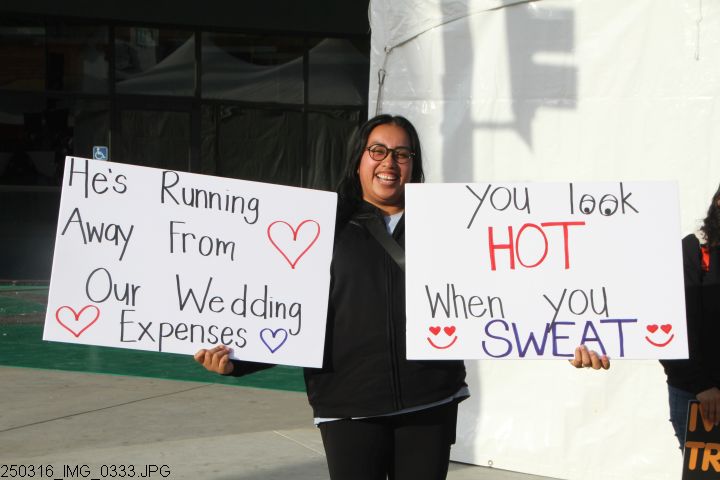 He's Running
Away From
Our Wedding
Expenses
You look
HOT
When you
SWEAT
TR
250316_IMG_0333.JPG